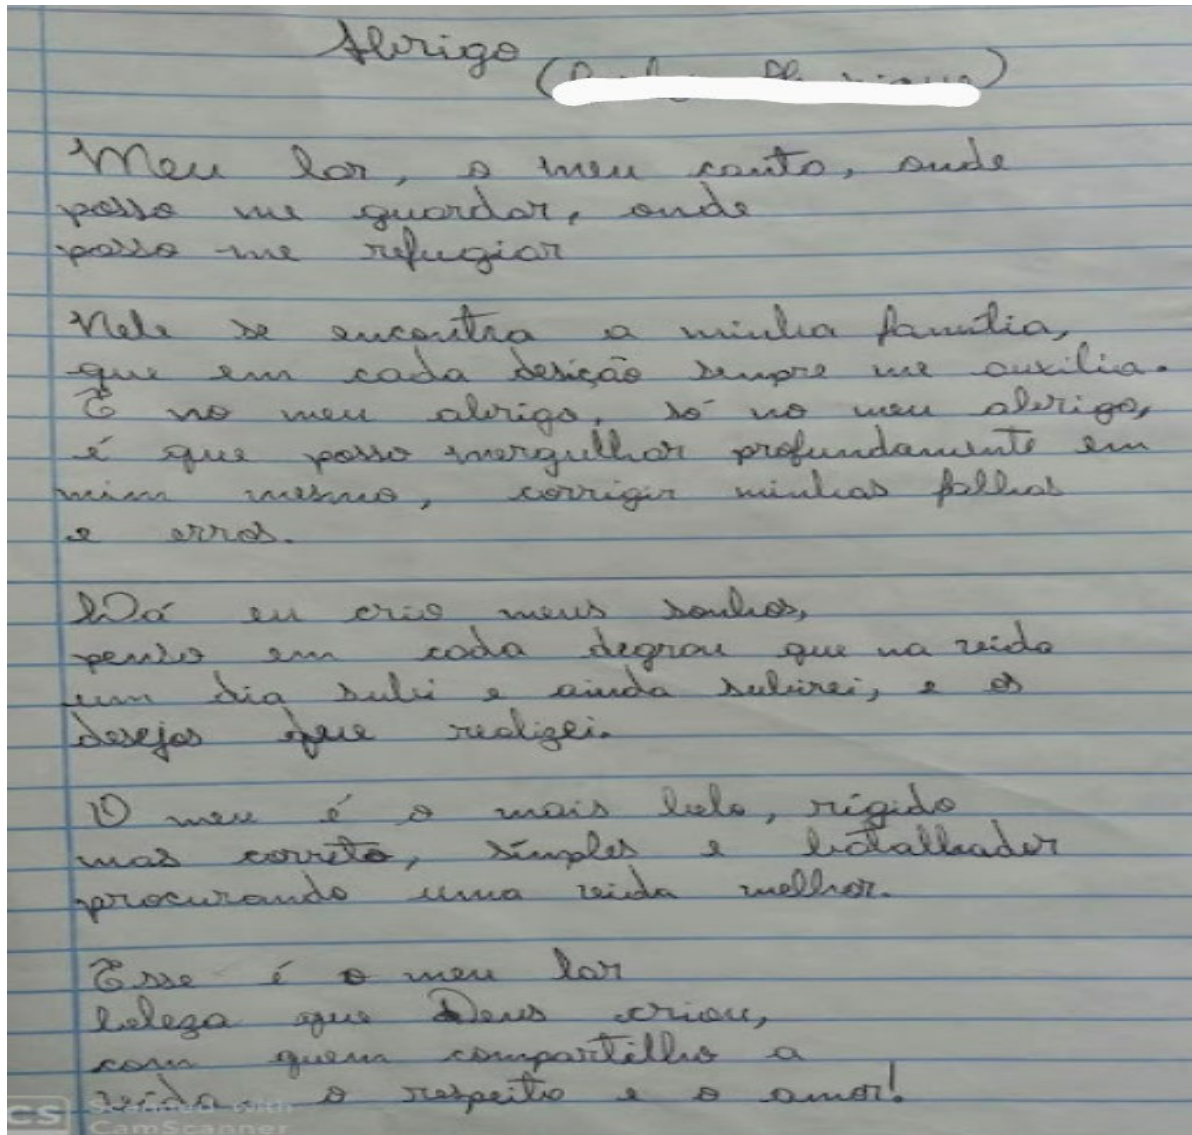 Abrigo
Meu lar, o meu canto, onde
posso me guardar, onde
posso me refugiar
Nele se encontra a minha família,
que em cada desição sempre me auxilia.
E no meu abrigo, só no meu abrigo,
é que posso mergulhar profundamente em
mim mesmo, corrigir minhas falhas
e erros.
Dá eu crio meus sonhos,
penso em cada degrau que na vida
um dia subi e ainda subirei, e os
desejos que realizei.
O meu é o mais belo, rígido
mas correto, simples e batalhador
procurando uma vida melhor.
Esse é o meu lar
beleza que Deus criou,
com quem compartilho a
vida, o respeito e o amor!
CS Scanned with
CamScanner